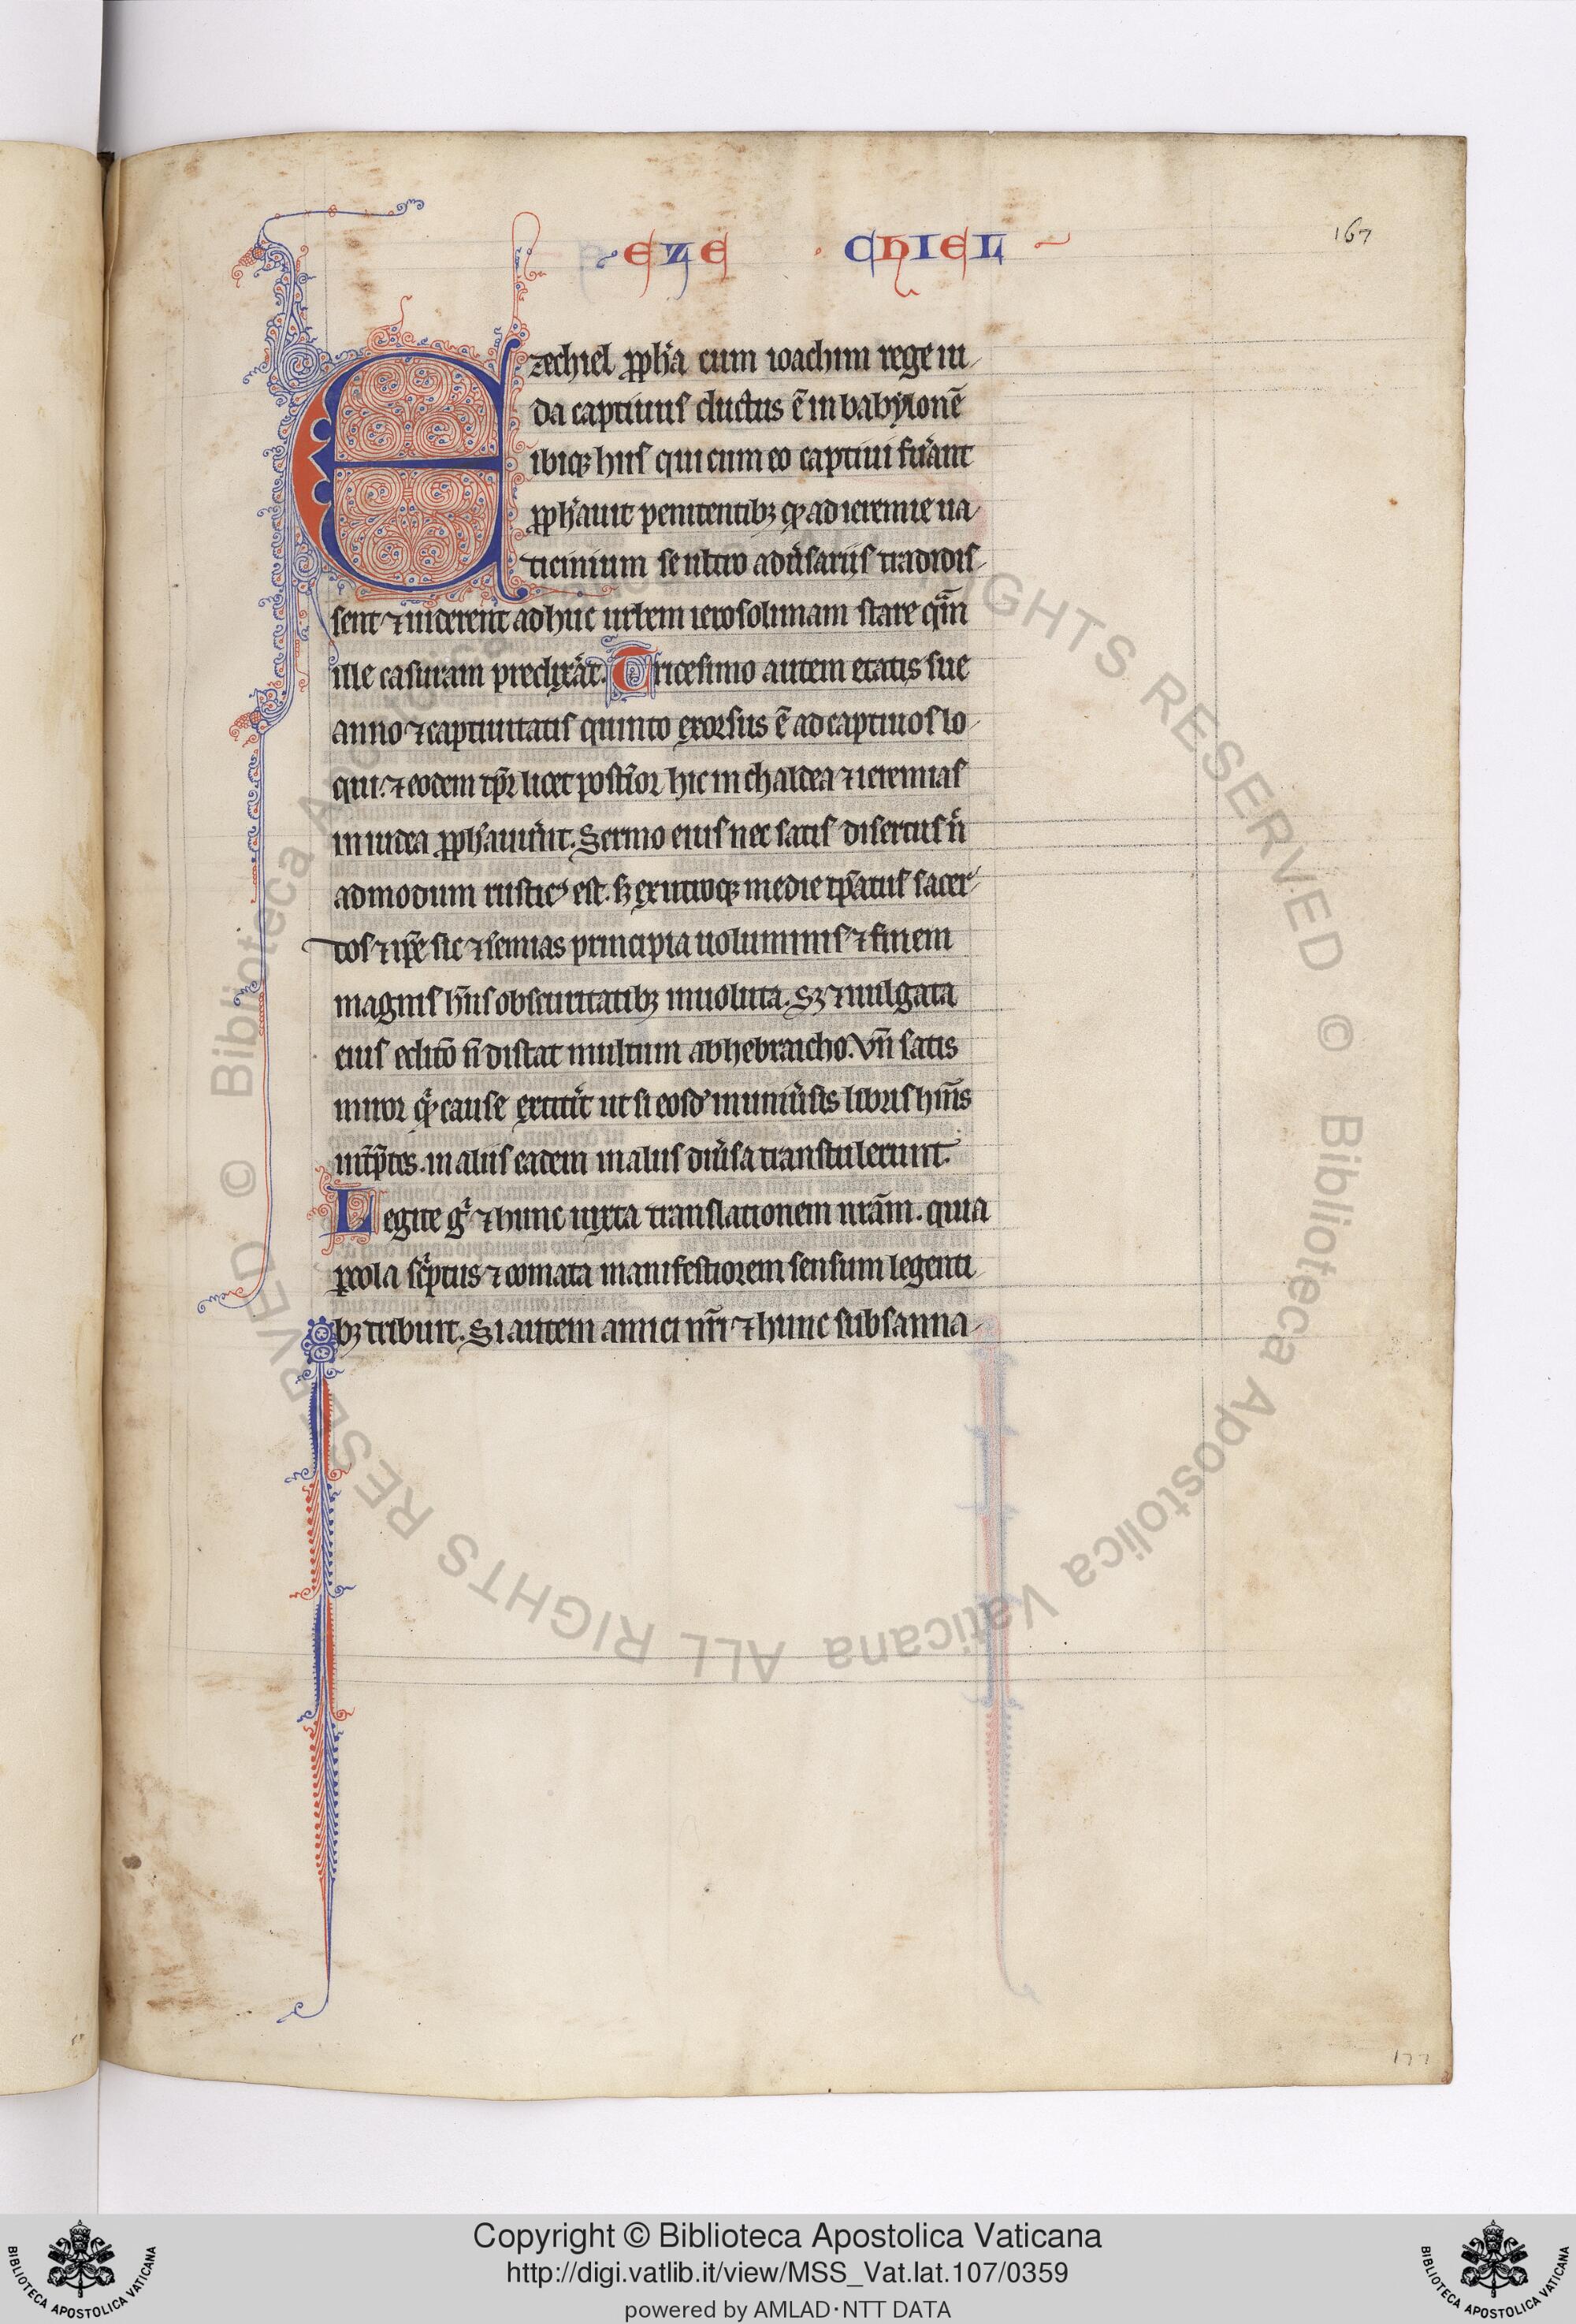 EZE CHIEL
167
Ezechiel ꝓph̃a cum ioachim rege iu
da captiuus ductus ē in babylonē
ibiqꝫ hiis qui cum eo captiui fuͤant
ꝓph̃auit penitentibꝫ ꝙ ad ieremie ua
ticinium se ultro adũsariis tradidis
sent ⁊ uiderent adhuc urbem ierosolimam stare qm̄
ille casuram predix̃at. Tricesimo autem etatis sue
anno ⁊ captiuitatis quinto exorsus ē ad captiuos lo
qui. ⁊ eodem tp̃r licet post̃ior hic in chaldea ⁊ ieremias
in iudea ꝓph̃auũnt. Sermo eius nec satis disertus ñ
admodum rusticꝰ est. sꝫ ex utroqꝫ medie tp̃atus sacer
dos ⁊ ip̃e sic ⁊ iẽmias principia uoluminis ⁊ finem
magnis hñs obscuritatibꝫ inuoluta. Sꝫ ⁊ uulgata
eius editō ñ distat multum ab hebraicho. Vñ satis
miror q̃ cause extitit̃ ut si eosdꝰ in uniũsis libris hm̄s
int̃p̃tes. in aliis eadem in aliis diũsa transtulerunt.
Legite gͦ ⁊ hunc iuxta translationem nrãm. quia
ꝑ cola sc̃ptus ⁊ comata manifestiorem sensum legenti
bꝫ tribuit. Si autem amici nr̃i ⁊ hunc subsanna
177
© Biblioteca Apostolica Vaticana ALL RIGHTS RESERVED © Biblioteca Apostolica Vaticana ALL RIGHTS RESERVED
BIBLIOTECA APOSTOLICA VATICANA
Copyright © Biblioteca Apostolica Vaticana
http://digi.vatlib.it/view/MSS_Vat.lat.107/0359
powered by AMLAD·NTT DATA
BIBLIOTECA APOSTOLICA VATICANA